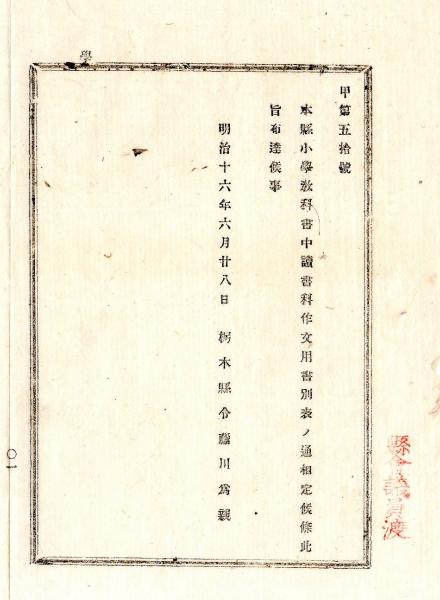 學
甲第五拾號
本縣小學教科書中讀書科作文用書別表ノ通相定候條此
旨布達候事
明治十六年六月廿八日　栃木縣令藤川爲親
縣會議員渡
〇一